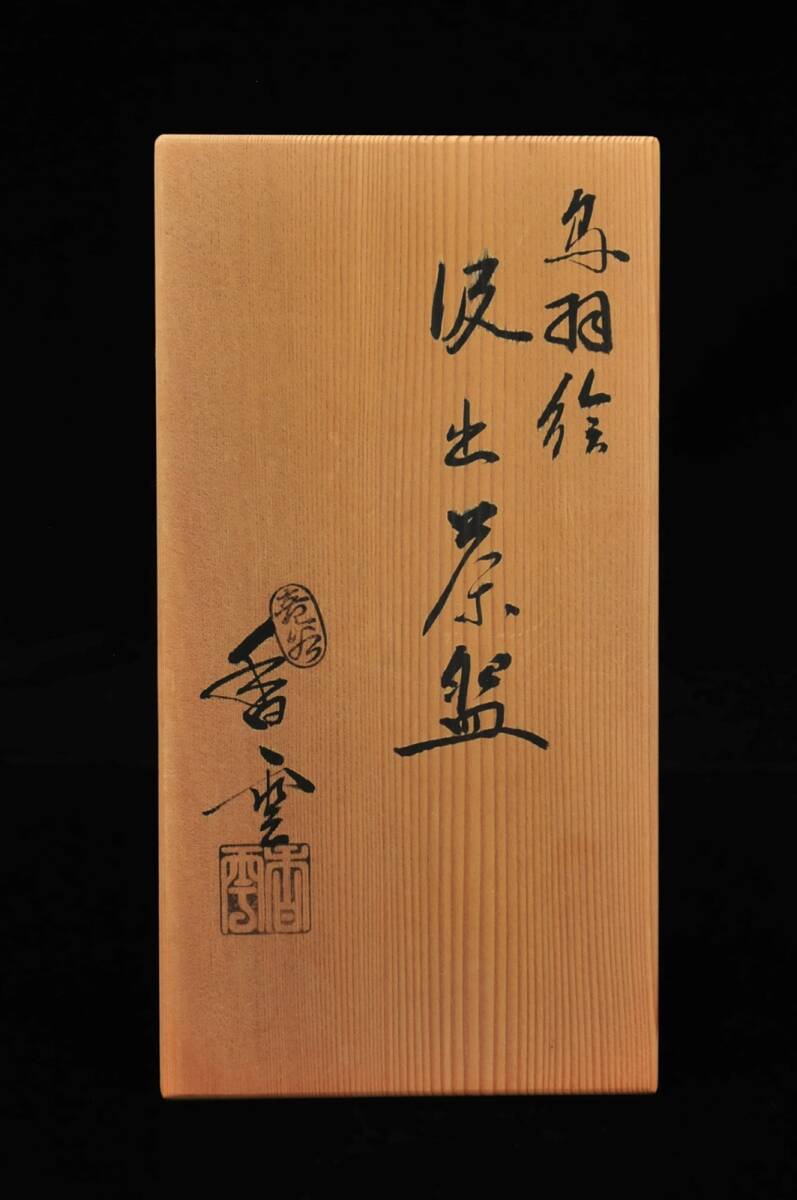 鳥羽絵
汲出茶盌
香雲
香雲